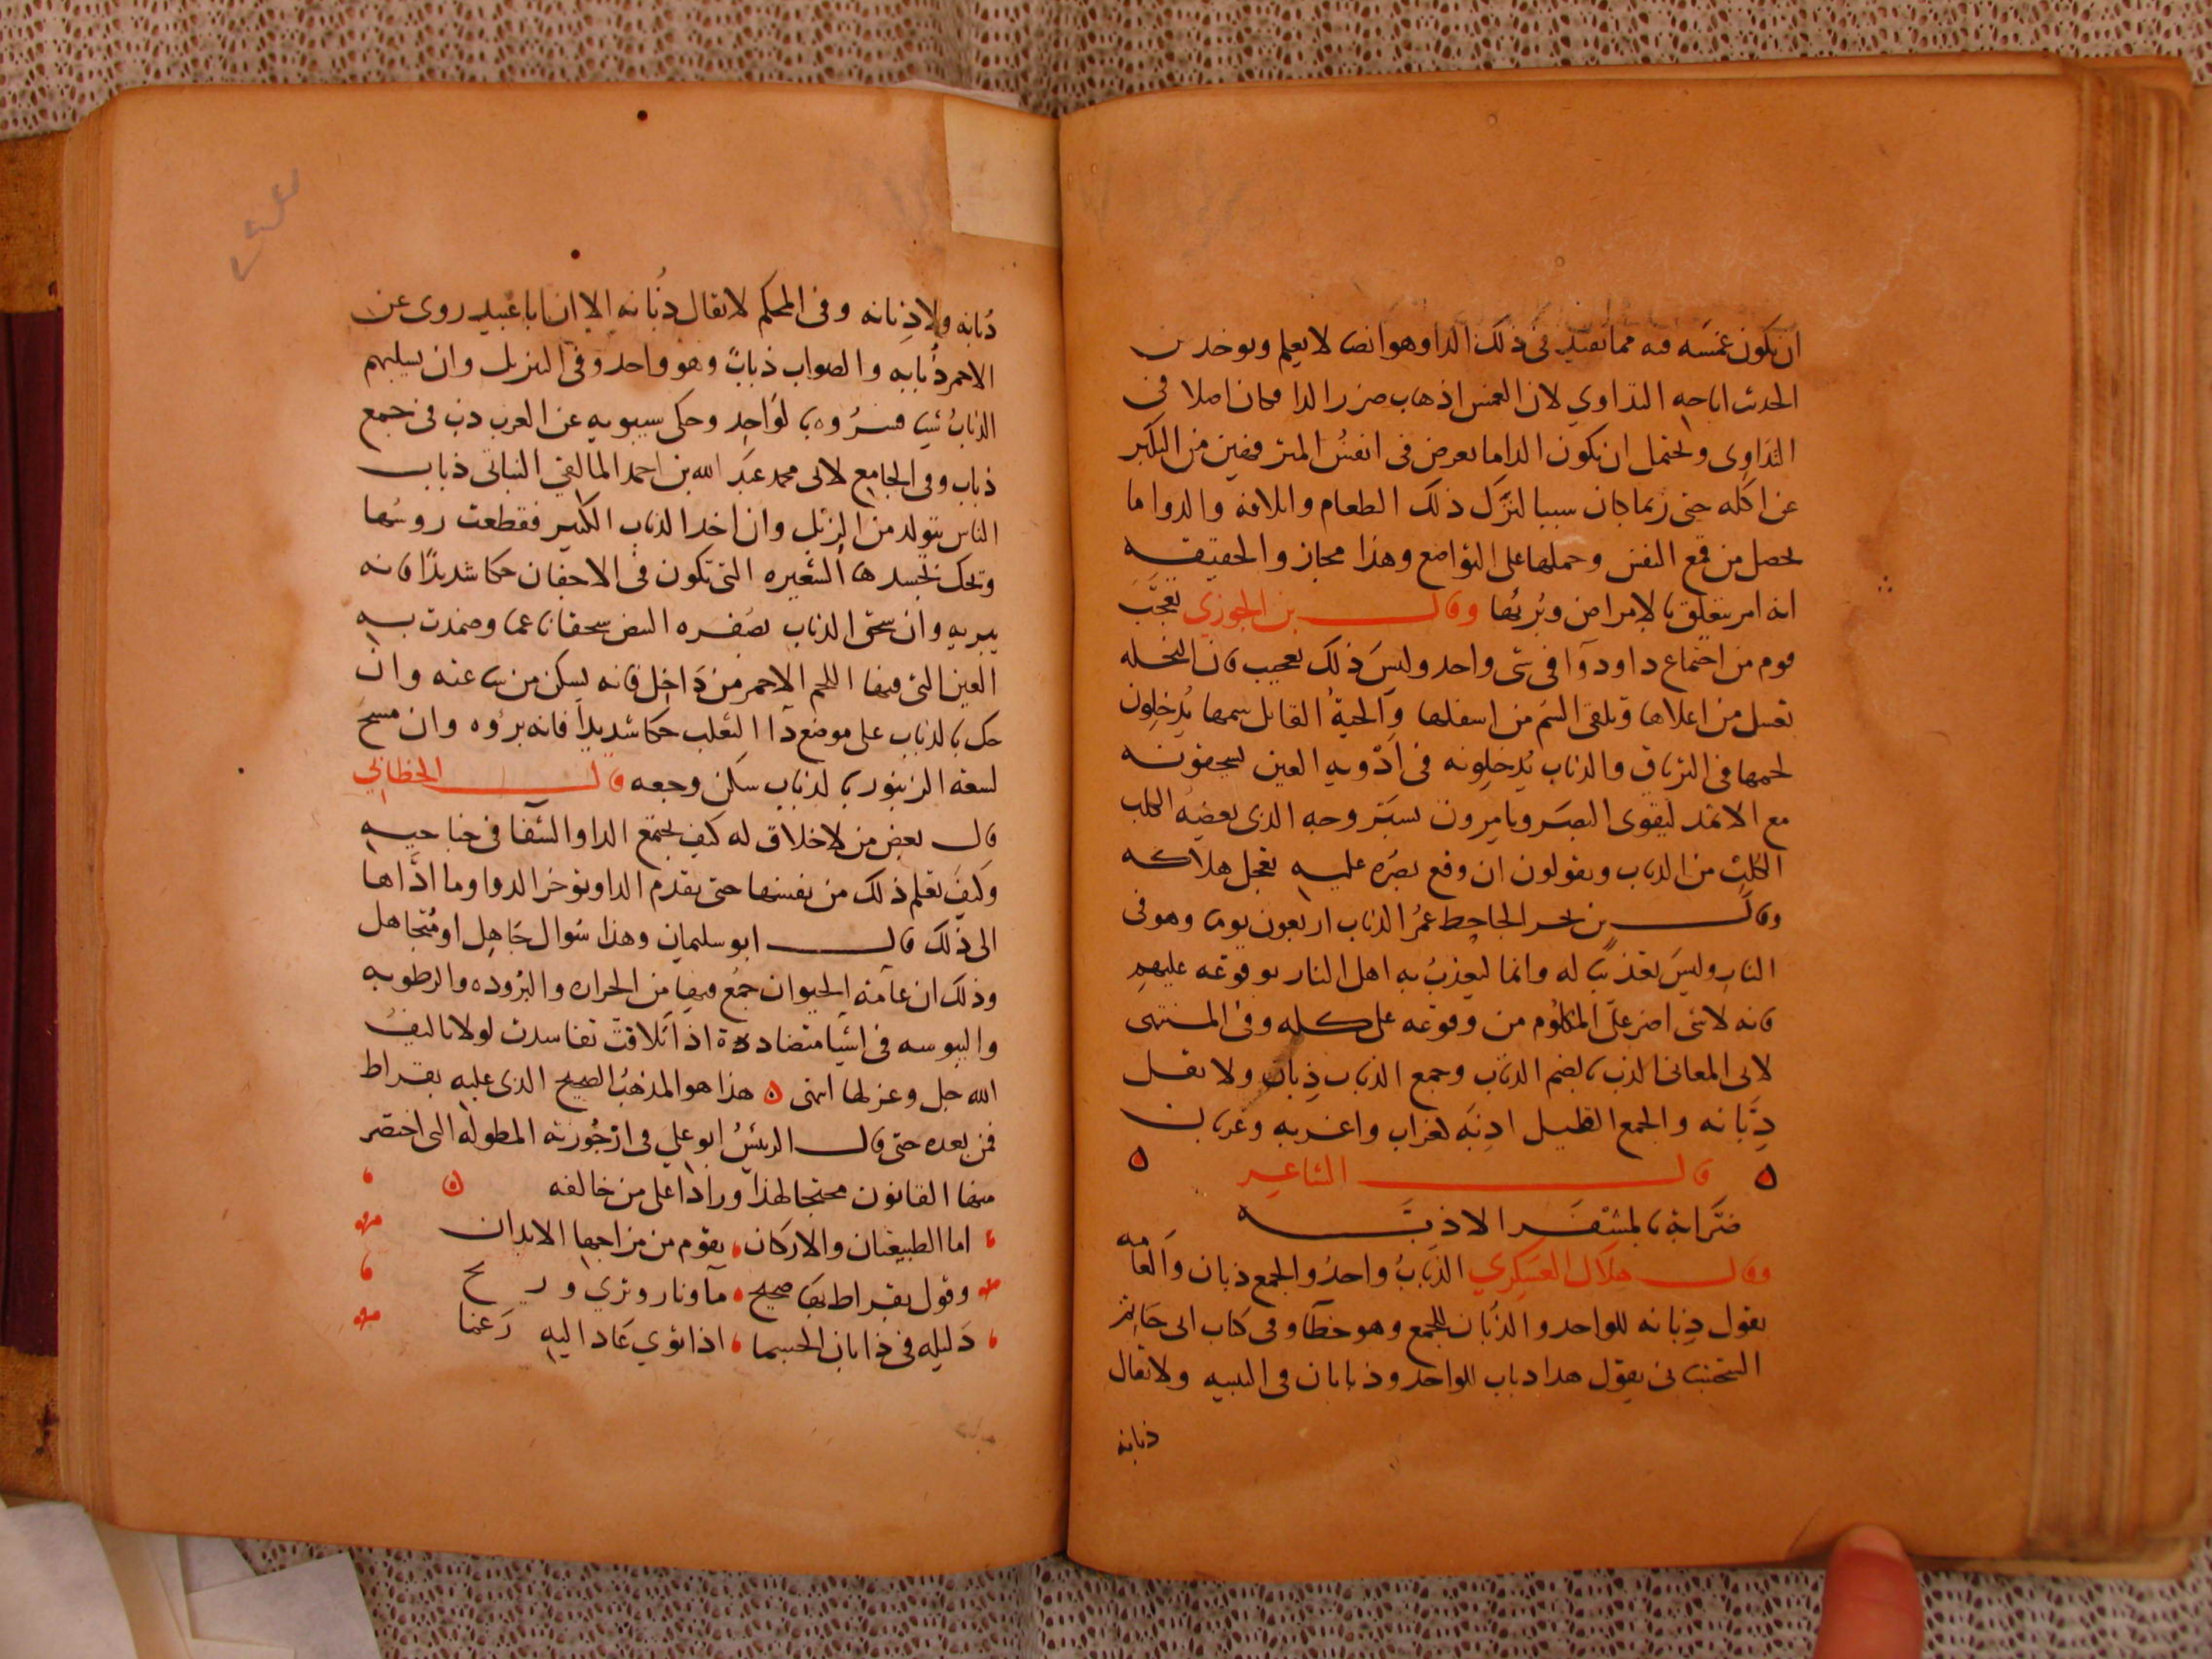 ان يكون غمسه فيه مما يفيد في ذلك الداء وهو ايضا لا يعلم ويوخذ من
الحديث اباحه التداوي لان الغمس اذهاب ضرر الدا فكان اصلا في
التداوي ويحتمل ان يكون الدا ما يعرض في انفس المترفهين من التكبر
عن اكله حتى ربما كان سببا لترك ذلك الطعام واتلافه والدوا ما
يحصل من قمع النفس وحملها على التواضع وهذا مجاز والحقيقه
انه امر يتعلق بالامراض وبرئها وقال بن الجوزي تعجب
قوم من اجتماع داء ودوآ في شي واحد وليس ذلك بعجيب فان النحله
تعسل من اعلاها وتلقى السم من اسفلها والحية القاتل سمها يدخلون
لحمها في الترياق والذباب يدخلونه في ادويه العين يسحقونه
مع الاثمد ليقوى البصر ويامرون بستر وجه الذي يعضه الكلب
الكلب من الذباب ويقولون ان وقع بصره عليه تعجل هلاكه
وقال بن بحر الجاحظ عمر الذباب اربعون يوما وهو في
النار وليس تعذيبا له وانما ليعذب به اهل النار بوقوعه عليهم
فانه لا شي اضر على المكلوم من وقوعه على كلمه وفي المنتهى
لابى المعانى الذب بالضم الذباب وجمع الذباب ذبان ولا تقل
ذبانه والجمع القليل اذبه كغراب واغربه وغربان
قال الشاعر
ضرابة بالمشفر الاذبه
وقال هلال العسكري الذباب واحد والجمع ذبان والعامه
تقول ذبانه للواحد والذبان للجمع وهو خطآ وفى كتاب ابى حاتم
السجستانى يقول هذا ذباب للواحد وذبابان فى التثنيه ولا يقال
ذبابه
ذبابه ولا ذبانه وفى المحكم لا يقال ذبابه الا ان ابا عبيد روى عن
الاحمر ذبابه والصواب ذباب وهو واحد وفى التنزيل وان يسلبهم
الذباب شيا فسروه بالواحد وحكى سيبويه عن العرب ذب فى جمع
ذباب وفى الجامع لابى محمد عبد الله بن احمد المالقي النباتى ذباب
الناس يتولد من الزبل وان اخذ الذباب الكبير فقطعت روسها
وتحك بجسدها الشعيره التى تكون فى الاجفان حكا شديدا فانه
يبريه وان سحق الذباب بصفره البيض سحقا ناعما وضمدت به
العين التى فيها اللحم الاحمر من داخل فانه يسكن من ساعته وان
حك بالذباب على موضع دآ الثعلب حكا شديدا فانه يبروه وان مسح
لسعة الزنبور بالذباب سكن وجعه قال الخطابي
قال بعض من لا خلاق له كيف يجتمع الدا والشفا فى جناحيه
وكيف تعلم ذلك من نفسها حتى يقدم الدا ويوخر الدوا وما اداها
الى ذلك قال ابو سليمان وهذا سوال جاهل او متجاهل
وذلك ان عامه الحيوان جمع فيها من الحراره والبروده والرطوبه
واليبوسه فى اشيا متضاددة اذا تلاقت تفاسدت لولا تاليف
الله جل وعز لها انتهى هذا هو المذهب الصحيح الذى عليه بقراط
فمن بعده حتى قال الرئيس ابو علي فى ارجوزته المطوله التى اختصر
منها القانون محتجا لهذا ورادا على من خالفه
اما الطبيعيات والاركان يقوم من مزاجها الابدان
وقول بقراط بها صحيح مآ ونار وثري وريح
دليله فى ذا بان الجسما اذا توي عاد اليه رغما